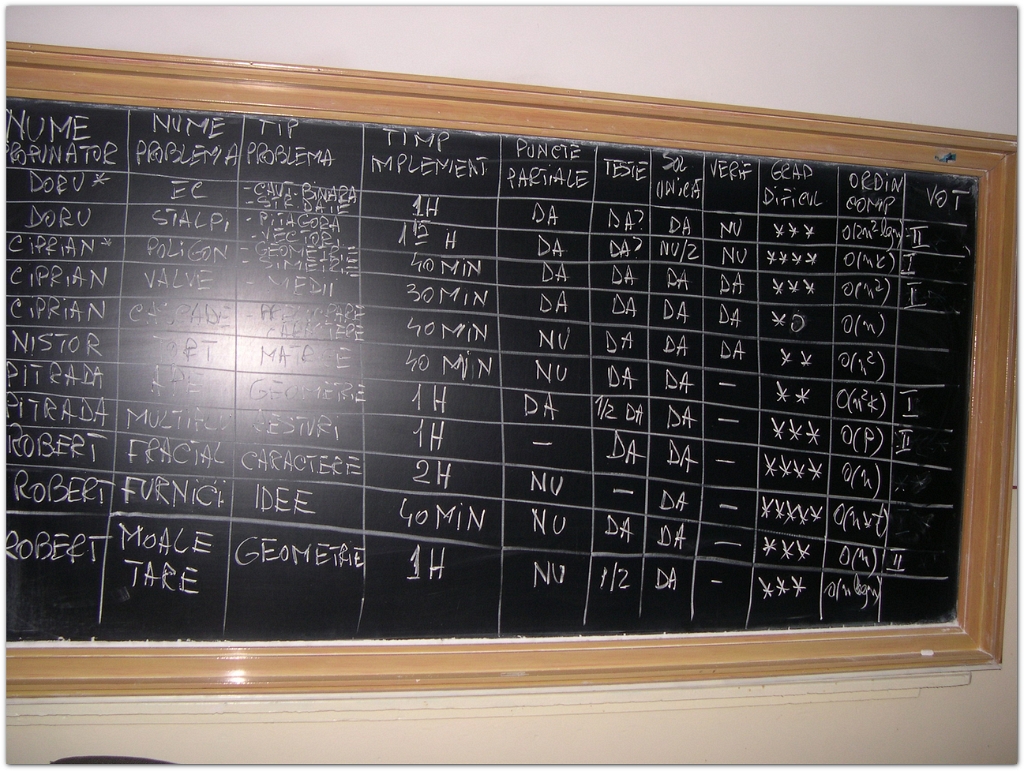 NUME PROPUNATOR NUME PROBLEMA TIP PROBLEMA TIMP IMPLEMENT PUNCTE PARTIALE TESTE SOL UNICA VERIF GRAD DIFICUL ORDIN COMP VOT
DORU* EC - CAUT. BINARA 1H DA DA? DA NU *** II
DORU STALPI - PITAGORA - VECTORI DA DA? NU/2 NU **** O(nk) I
CIPRIAN* POLIGON - GEOMETRIE - SIMETRIE 40 MIN DA DA DA DA *** O(n²) I
CIPRIAN VALVE - MEDII 30 MIN DA DA DA DA * O(n)
CIPRIAN 40 MIN NU DA DA DA ** O(n²)
NISTOR 40 MIN NU DA DA - ** O(n²k) I
PITRADA GEOMETRIE 1H DA 1/2 DA DA - *** O(P) II
PITRADA 1H - DA DA - **** O(n)
ROBERT FRACIAL CARACTERE 2H NU - DA - *****
ROBERT FURNICI IDEE 40 MIN NU DA DA - *** O(n) II
ROBERT MOALE TARE GEOMETRIE 1H NU 1/2 DA - *** O(n logn)